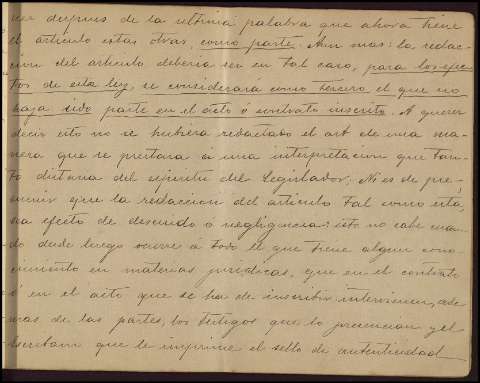 después de la ultima palabra que ahora tiene
el articulo estas otras, como parte. Aun mas: la redac-
cion del articulo deberia ser en tal caso, para los efec-
tos de esta ley, se considerará como tercero el que no
haya sido parte en el acto ó contrato inscrito. A querer
decir esto no se hubiera redactado el art de una ma-
nera que se prestara á una interpretacion que tan-
to distaria del espiritu del Legislador. Ni es de pre-
sumir que la redaccion del articulo tal como está,
sea efecto de descuido ó negligencia: esto no cabe cuan-
do desde luego ocurre á todo el que tiene algun cono-
cimiento en materias juridicas, que en el contrato
ó en el acto que se ha de inscribir intervienen, ade-
mas de las partes, los testigos que lo presencian y el
escribano que le imprime el sello de autenticidad